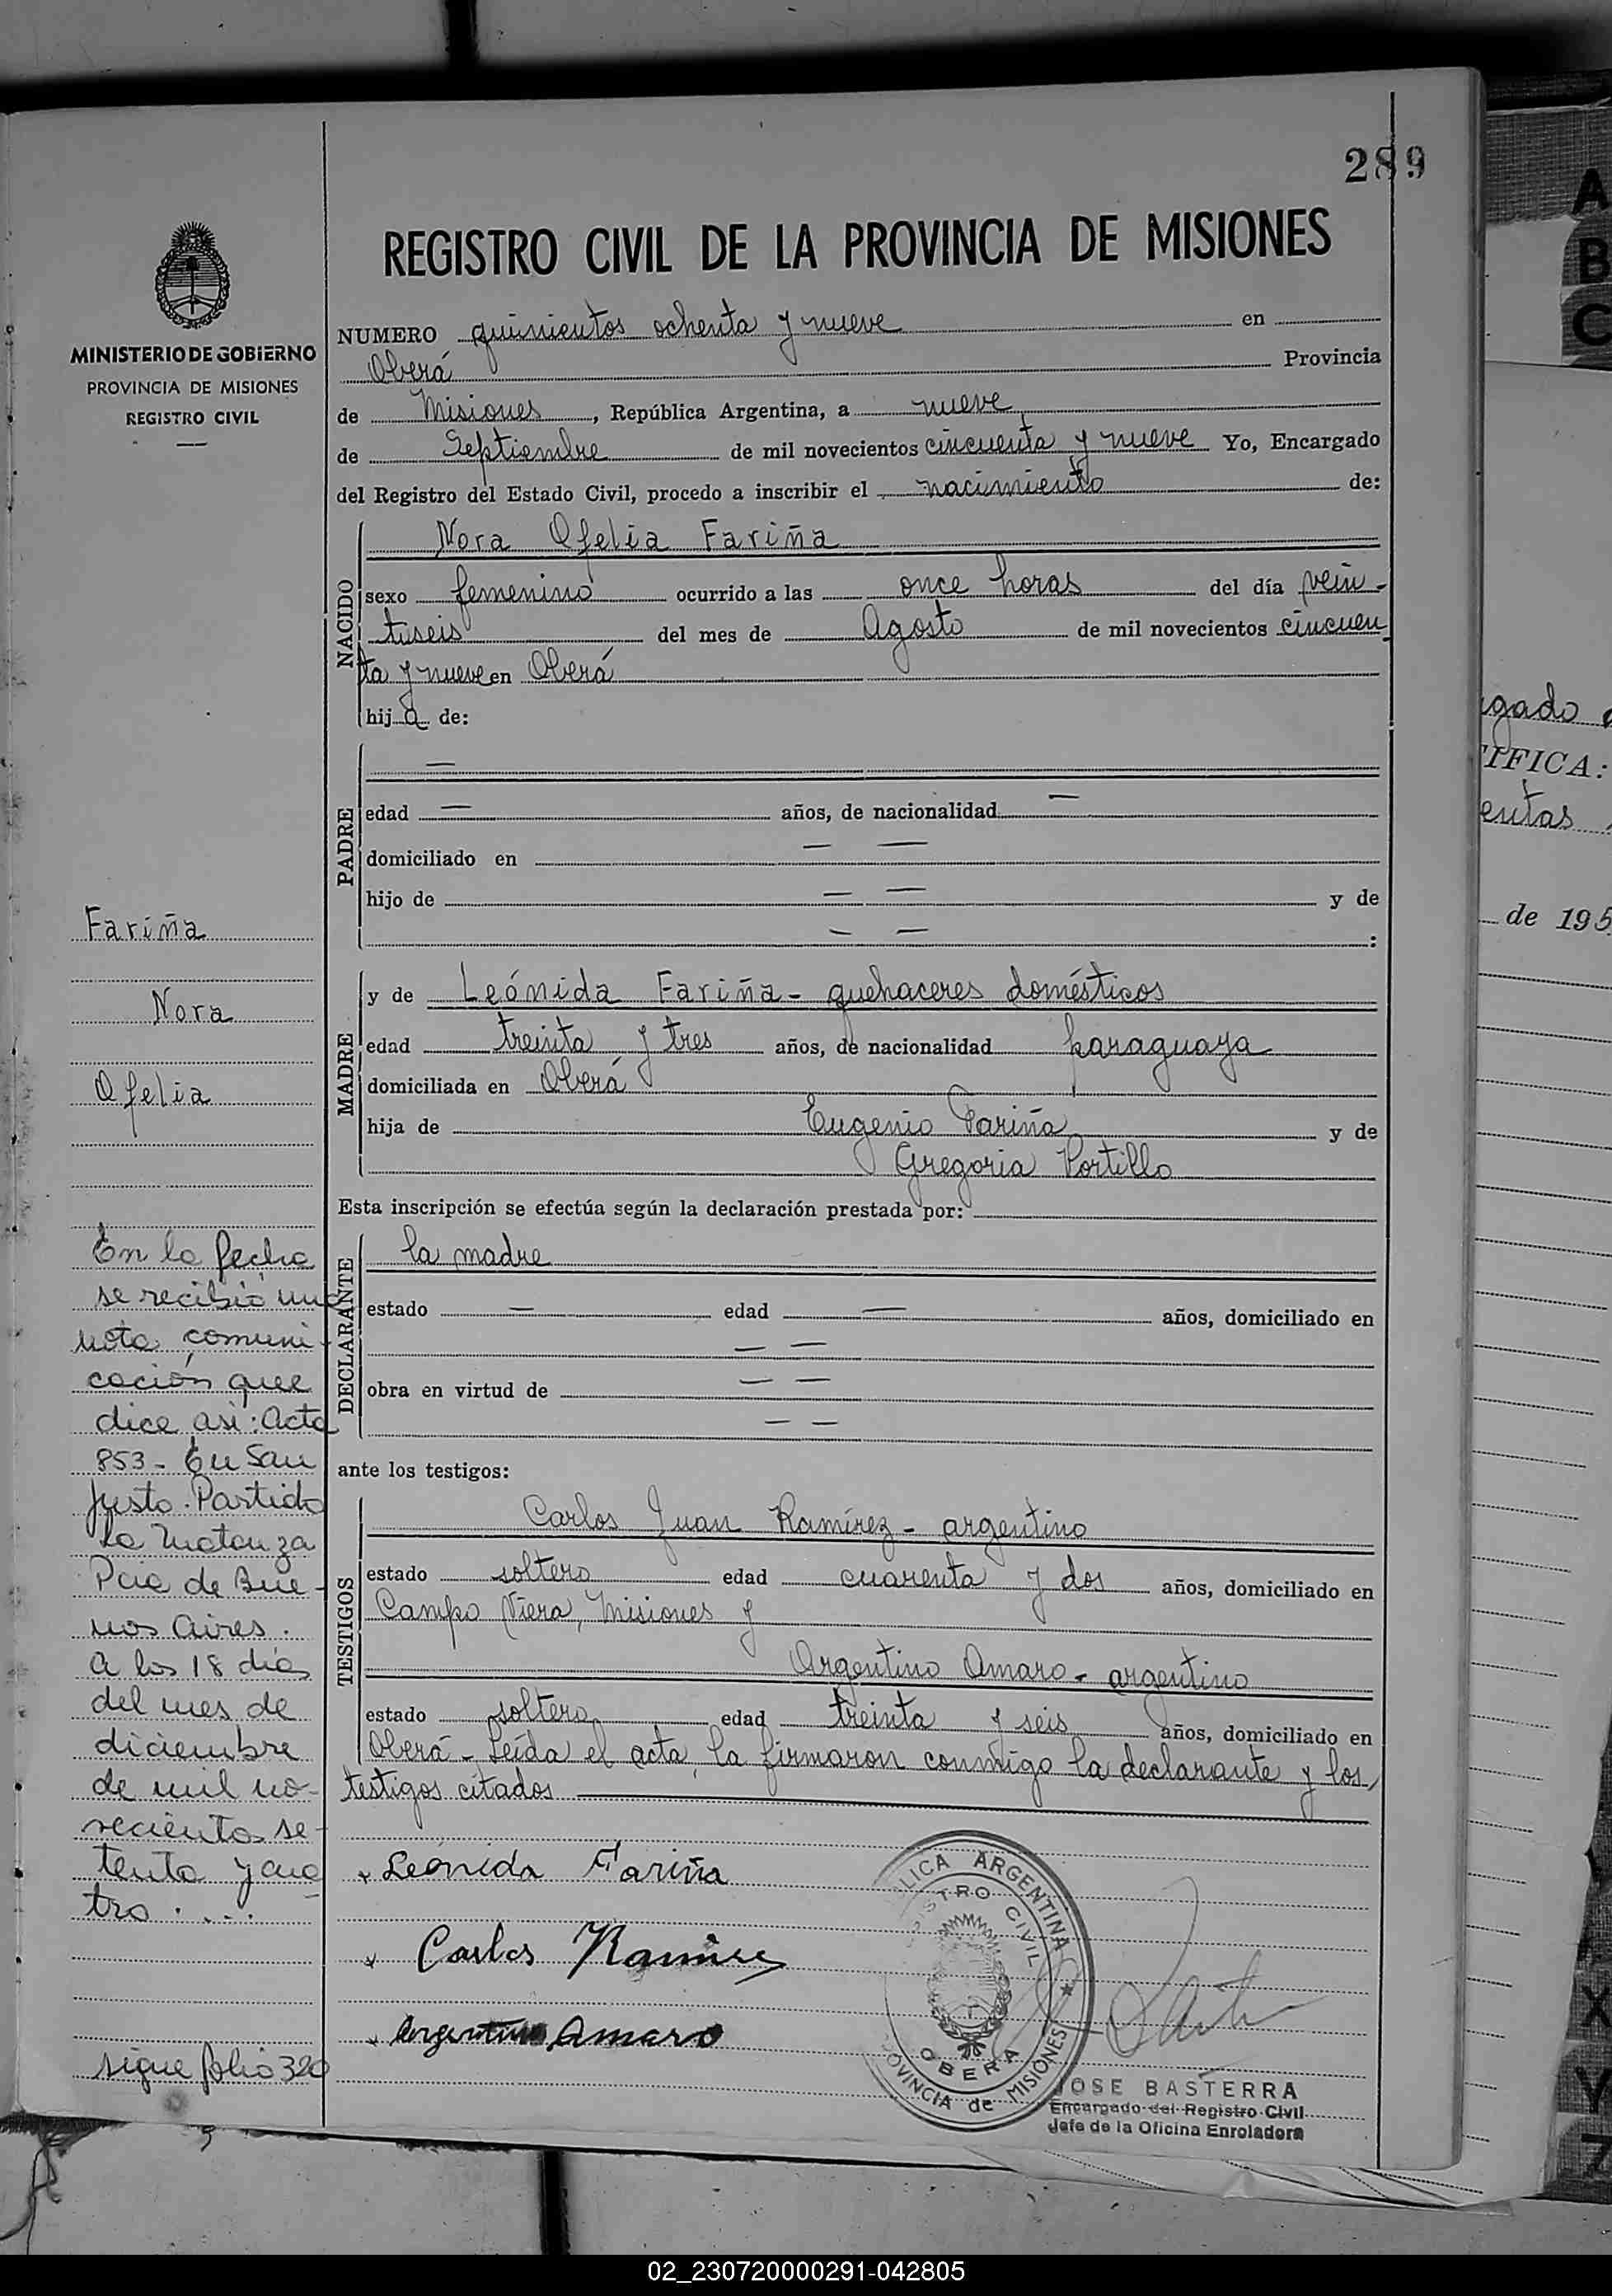 289
REGISTRO CIVIL DE LA PROVINCIA DE MISIONES
MINISTERIO DE GOBIERNO
PROVINCIA DE MISIONES
REGISTRO CIVIL
NUMERO quinientos ochenta y nueve en
Oberá Provincia
de Misiones, República Argentina, a nueve
de Septiembre de mil novecientos cincuenta y nueve Yo, Encargado
del Registro del Estado Civil, procedo a inscribir el nacimiento de:
NACIDO
Nora Ofelia Fariña
sexo femenino ocurrido a las once horas del día vein-
tiseis del mes de Agosto de mil novecientos cincuen
ta y nueve en Oberá
hija de:
PADRE
—
edad — años, de nacionalidad —
domiciliado en — —
hijo de — — y de
— — :
MADRE
y de Leónida Fariña - quehaceres domésticos
edad treinta y tres años, de nacionalidad paraguaya
domiciliada en Oberá
hija de Eugenio Fariña y de
Gregoria Portillo
Esta inscripción se efectúa según la declaración prestada por:
DECLARANTE
la madre
estado — edad — años, domiciliado en
— —
obra en virtud de — —
— —
ante los testigos:
TESTIGOS
Carlos Juan Ramírez - argentino
estado soltero edad cuarenta y dos años, domiciliado en
Campo Viera, Misiones y
Argentino Amaro - argentino
estado soltero edad treinta y seis años, domiciliado en
Oberá - Leída el acta, la firmaron conmigo la declarante y los
testigos citados
Leónida Fariña
Carlos Ramirez
Argentino Amaro
Fariña
Nora
Ofelia
En la fecha
se recibió una
nota comuni-
cación que
dice asi: Acta
853 - En San
Justo. Partido
La Matanza
Pcia de Bue-
nos Aires.
A los 18 dias
del mes de
diciembre
de mil no-
vecientos se-
tenta y cua
tro . . . .
sigue folio 320
LICA ARGENTINA
STRO CIVIL
OBERA
OVINCIA de MISIONES
JOSE BASTERRA
Encargado del Registro Civil
Jefe de la Oficina Enroladora
gado
TIFICA:
entas
de 195
A
B
C
X
Y
Z
02_230720000291-042805